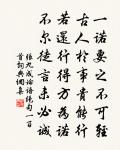 一諾要之不可輕
古人於事貴躬行
若還行得方為諾
不爾徒言未必誠
張九成論語絕句一百
首詞典調集